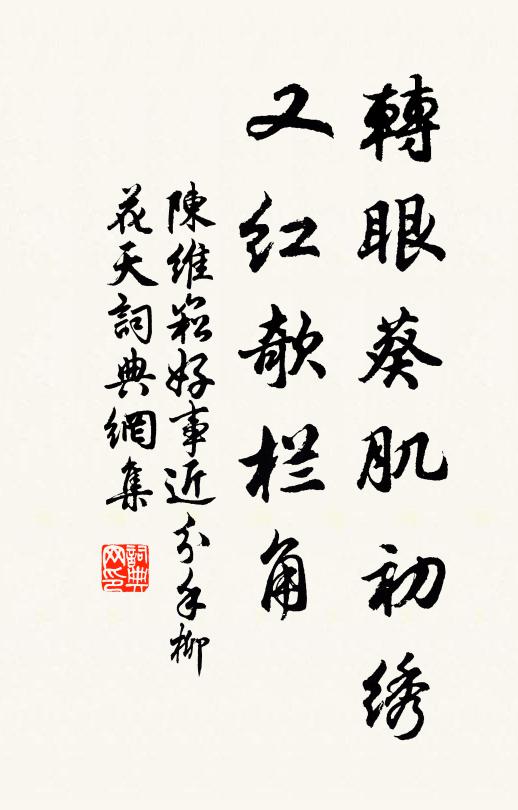 轉眼葵肌初绣
又红欹栏角
陳維崧好事近分手柳
花天詞典網集
詞典网印